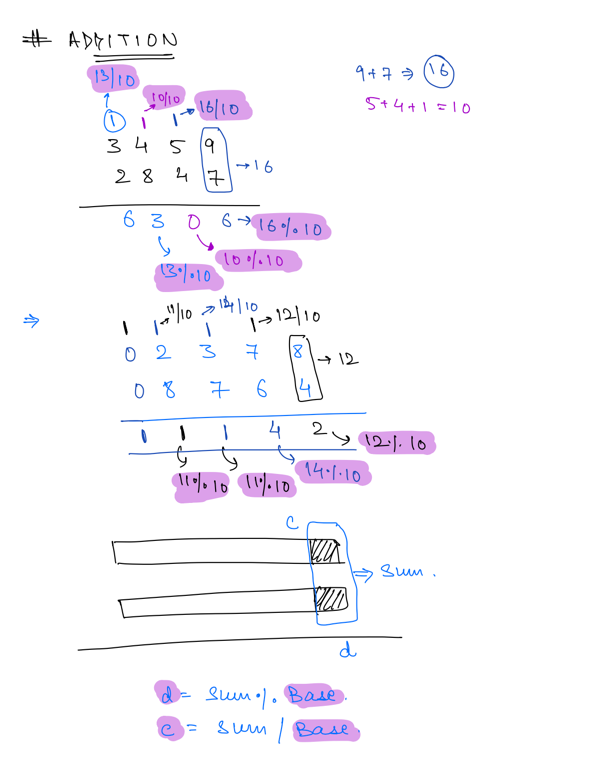 # ADDITION
13/10 10/10 9+7 ⇒ 16
1 1 1 → 16/10 5+4+1=10
3 4 5 9
2 8 4 7 → 16
6 3 0 6 → 16%10
13%10 10%10
⇒ 11/10 14/10
1 1 1 1 → 12/10
0 2 3 7 8 → 12
0 8 7 6 4
1 1 1 4 2 → 12%10
11%10 11%10 14%10
c
⇒ Sum.
d
d = Sum % Base.
c = Sum / Base.